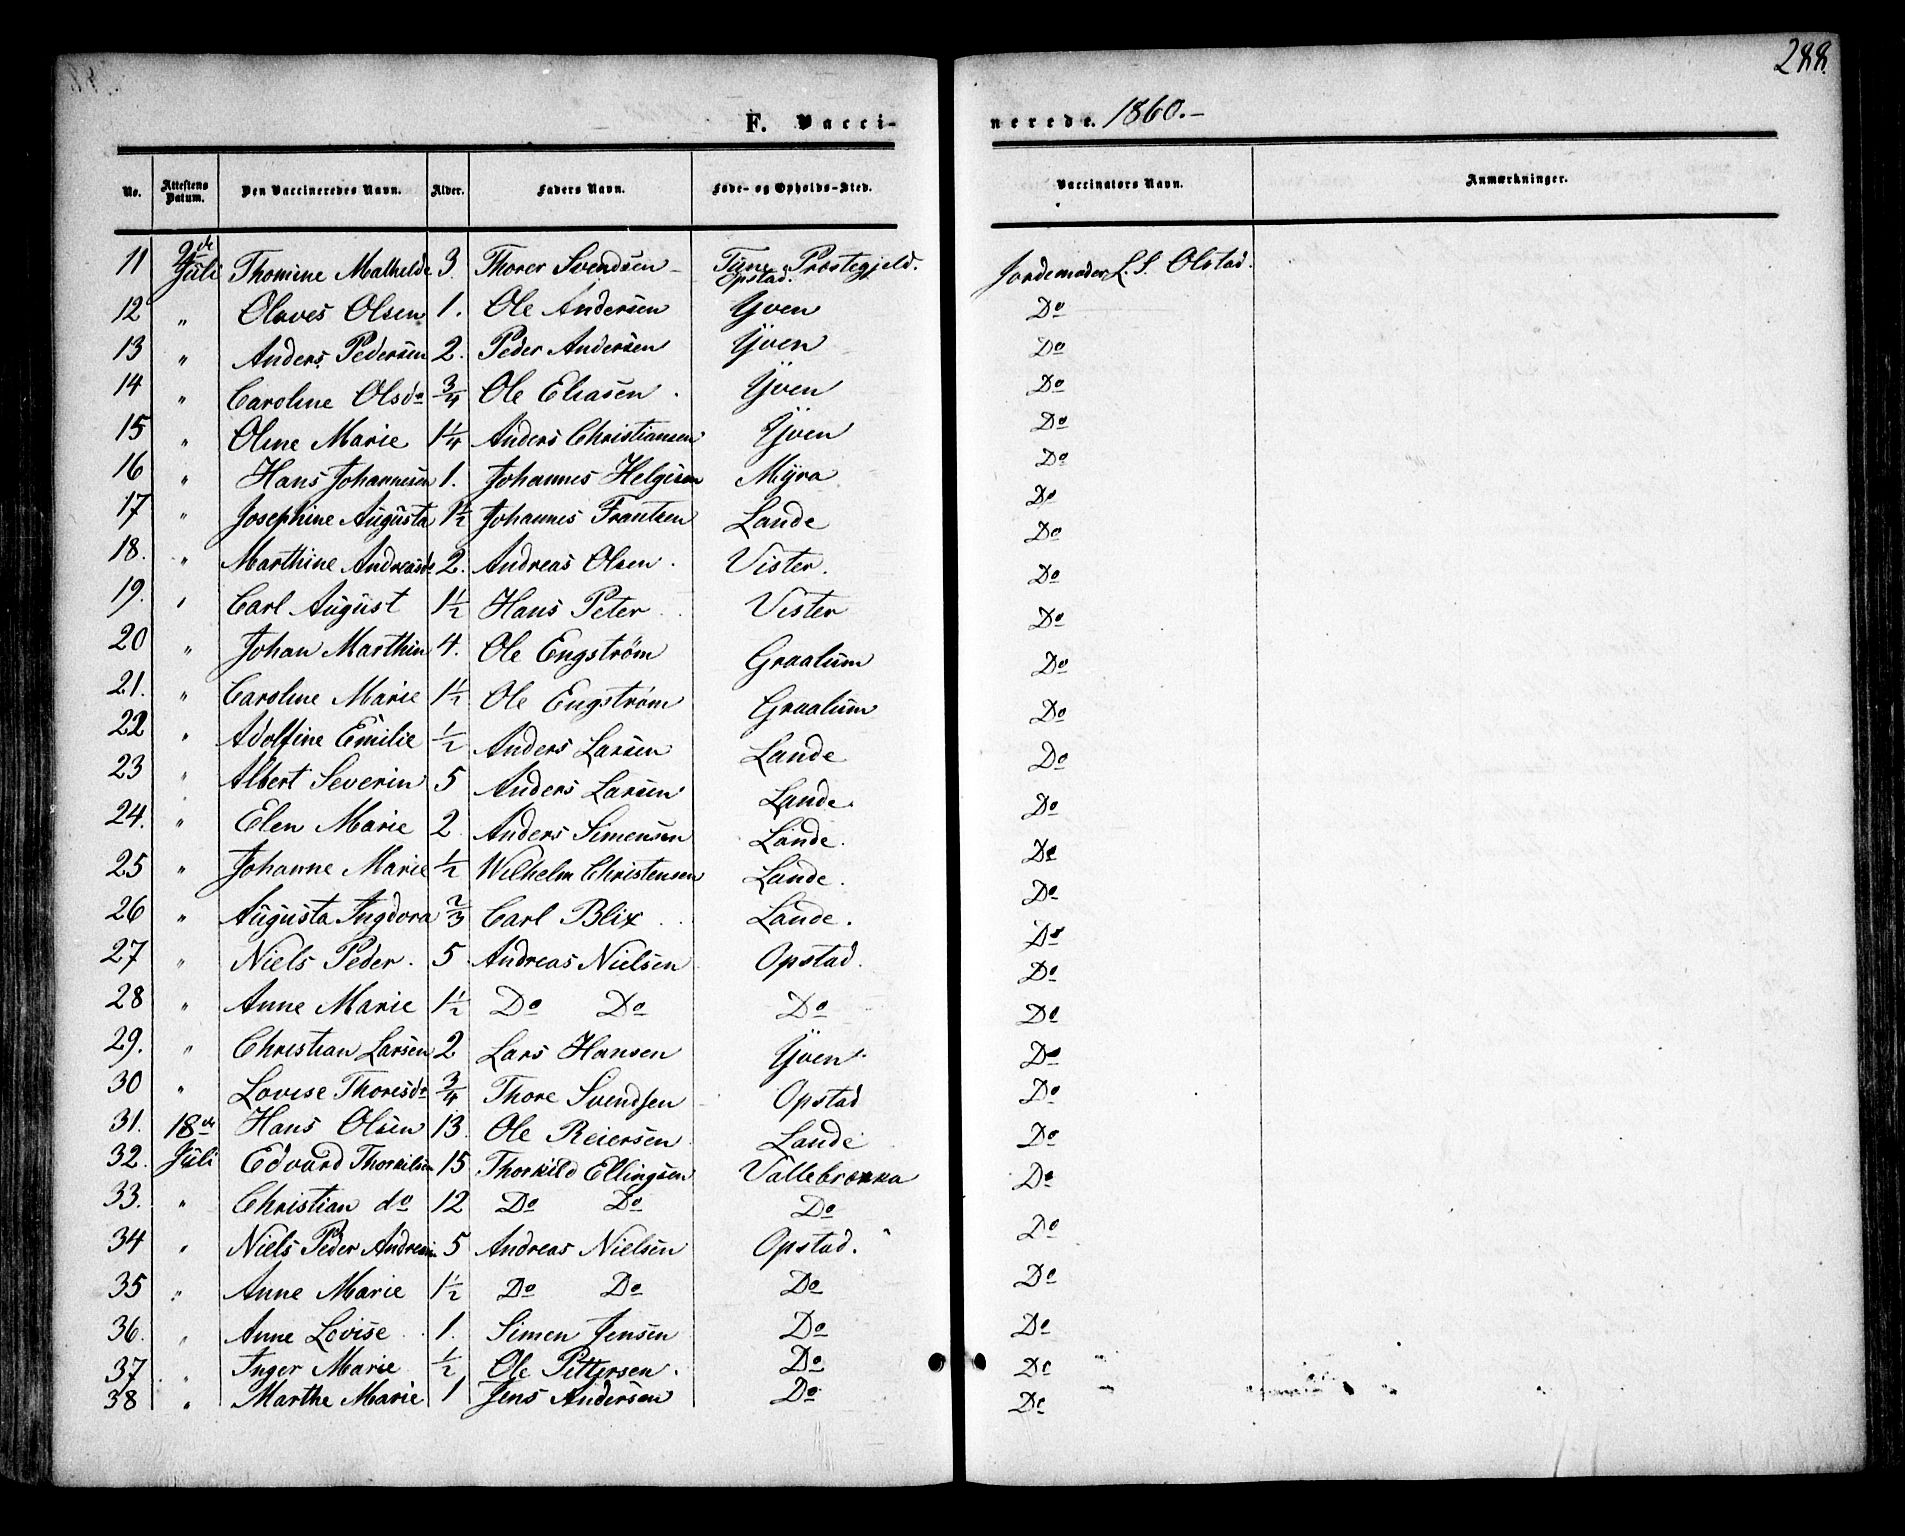 288.
F. Vacci-
nerede. 1860.-
No. Attestens Datum. Den Vaccineredes Navn. Alder. Faders Navn. Føde- og Opholds-Sted. Vaccinators Navn. Anmærkninger.
11 9de Juli Thomine Mathilde 3. Thorer Svendsen Tune Præstegjeld. Opstad. Jordemoder L. S. Olstad.
12 " Olaves Olsen 1. Ole Andersen Yven Do
13 " Anders Pedersen 2. Peder Andersen Yven Do
14 " Caroline Olsdr 3/4 Ole Eliasen. Yven Do
15 " Oline Marie 1 1/4 Anders Christiansen Yven Do
16 " Hans Johannesen 1. Johannes Helgesen Myra Do
17 " Josephine Augusta 1 1/2 Johannes Frantzen Lande Do
18. " Marthine Andreasdr 2. Andreas Olsen. Vister. Do
19. " Carl August 1 1/2 Hans Peter Vister Do
20 " Johan Marthin 4. Ole Engstrøm Graalum Do
21. " Caroline Marie 1 1/2 Ole Engstrøm Graalum Do
22 " Adolfine Emilie 1/2 Anders Larsen Lande Do
23 " Albert Severin 5 Anders Larsen Lande. Do
24. " Elen Marie 2 Anders Simensen Lande. Do
25 " Johanne Marie 1/2 Wilhelm Christensen Lande. Do
26 " Augusta Ingdora 2/3 Carl Blix Lande. Do
27 " Niels Peder. 5. Andreas Nielsen Opstad. Do
28 " Anne Marie 1 1/2 Do Do Do Do
29. " Christian Larsen 2 Lars Hansen Yven. Do
30 " Lovise Thoresdr 3/4 Thore Svendsen Opstad Do
31. 18de Hans Olsen 13. Ole Reiersen Lande Do
32. Juli Edvard Thorkilsen 15 Thorkild Ellingsen Vallebrækka Do
33. " Christian do 12 Do Do Do Do
34 " Niels Peder Andreasen 5 Andreas Nielsen Opstad. Do
35 " Anne Marie 1 1/2 Do Do Do Do
36. " Anne Lovise 1. Simen Jensen Do Do
37 " Inger Marie 1/2 Ole Pettersen. Do Do
38 " Marthe Marie 1 Jens Andersen Do Do